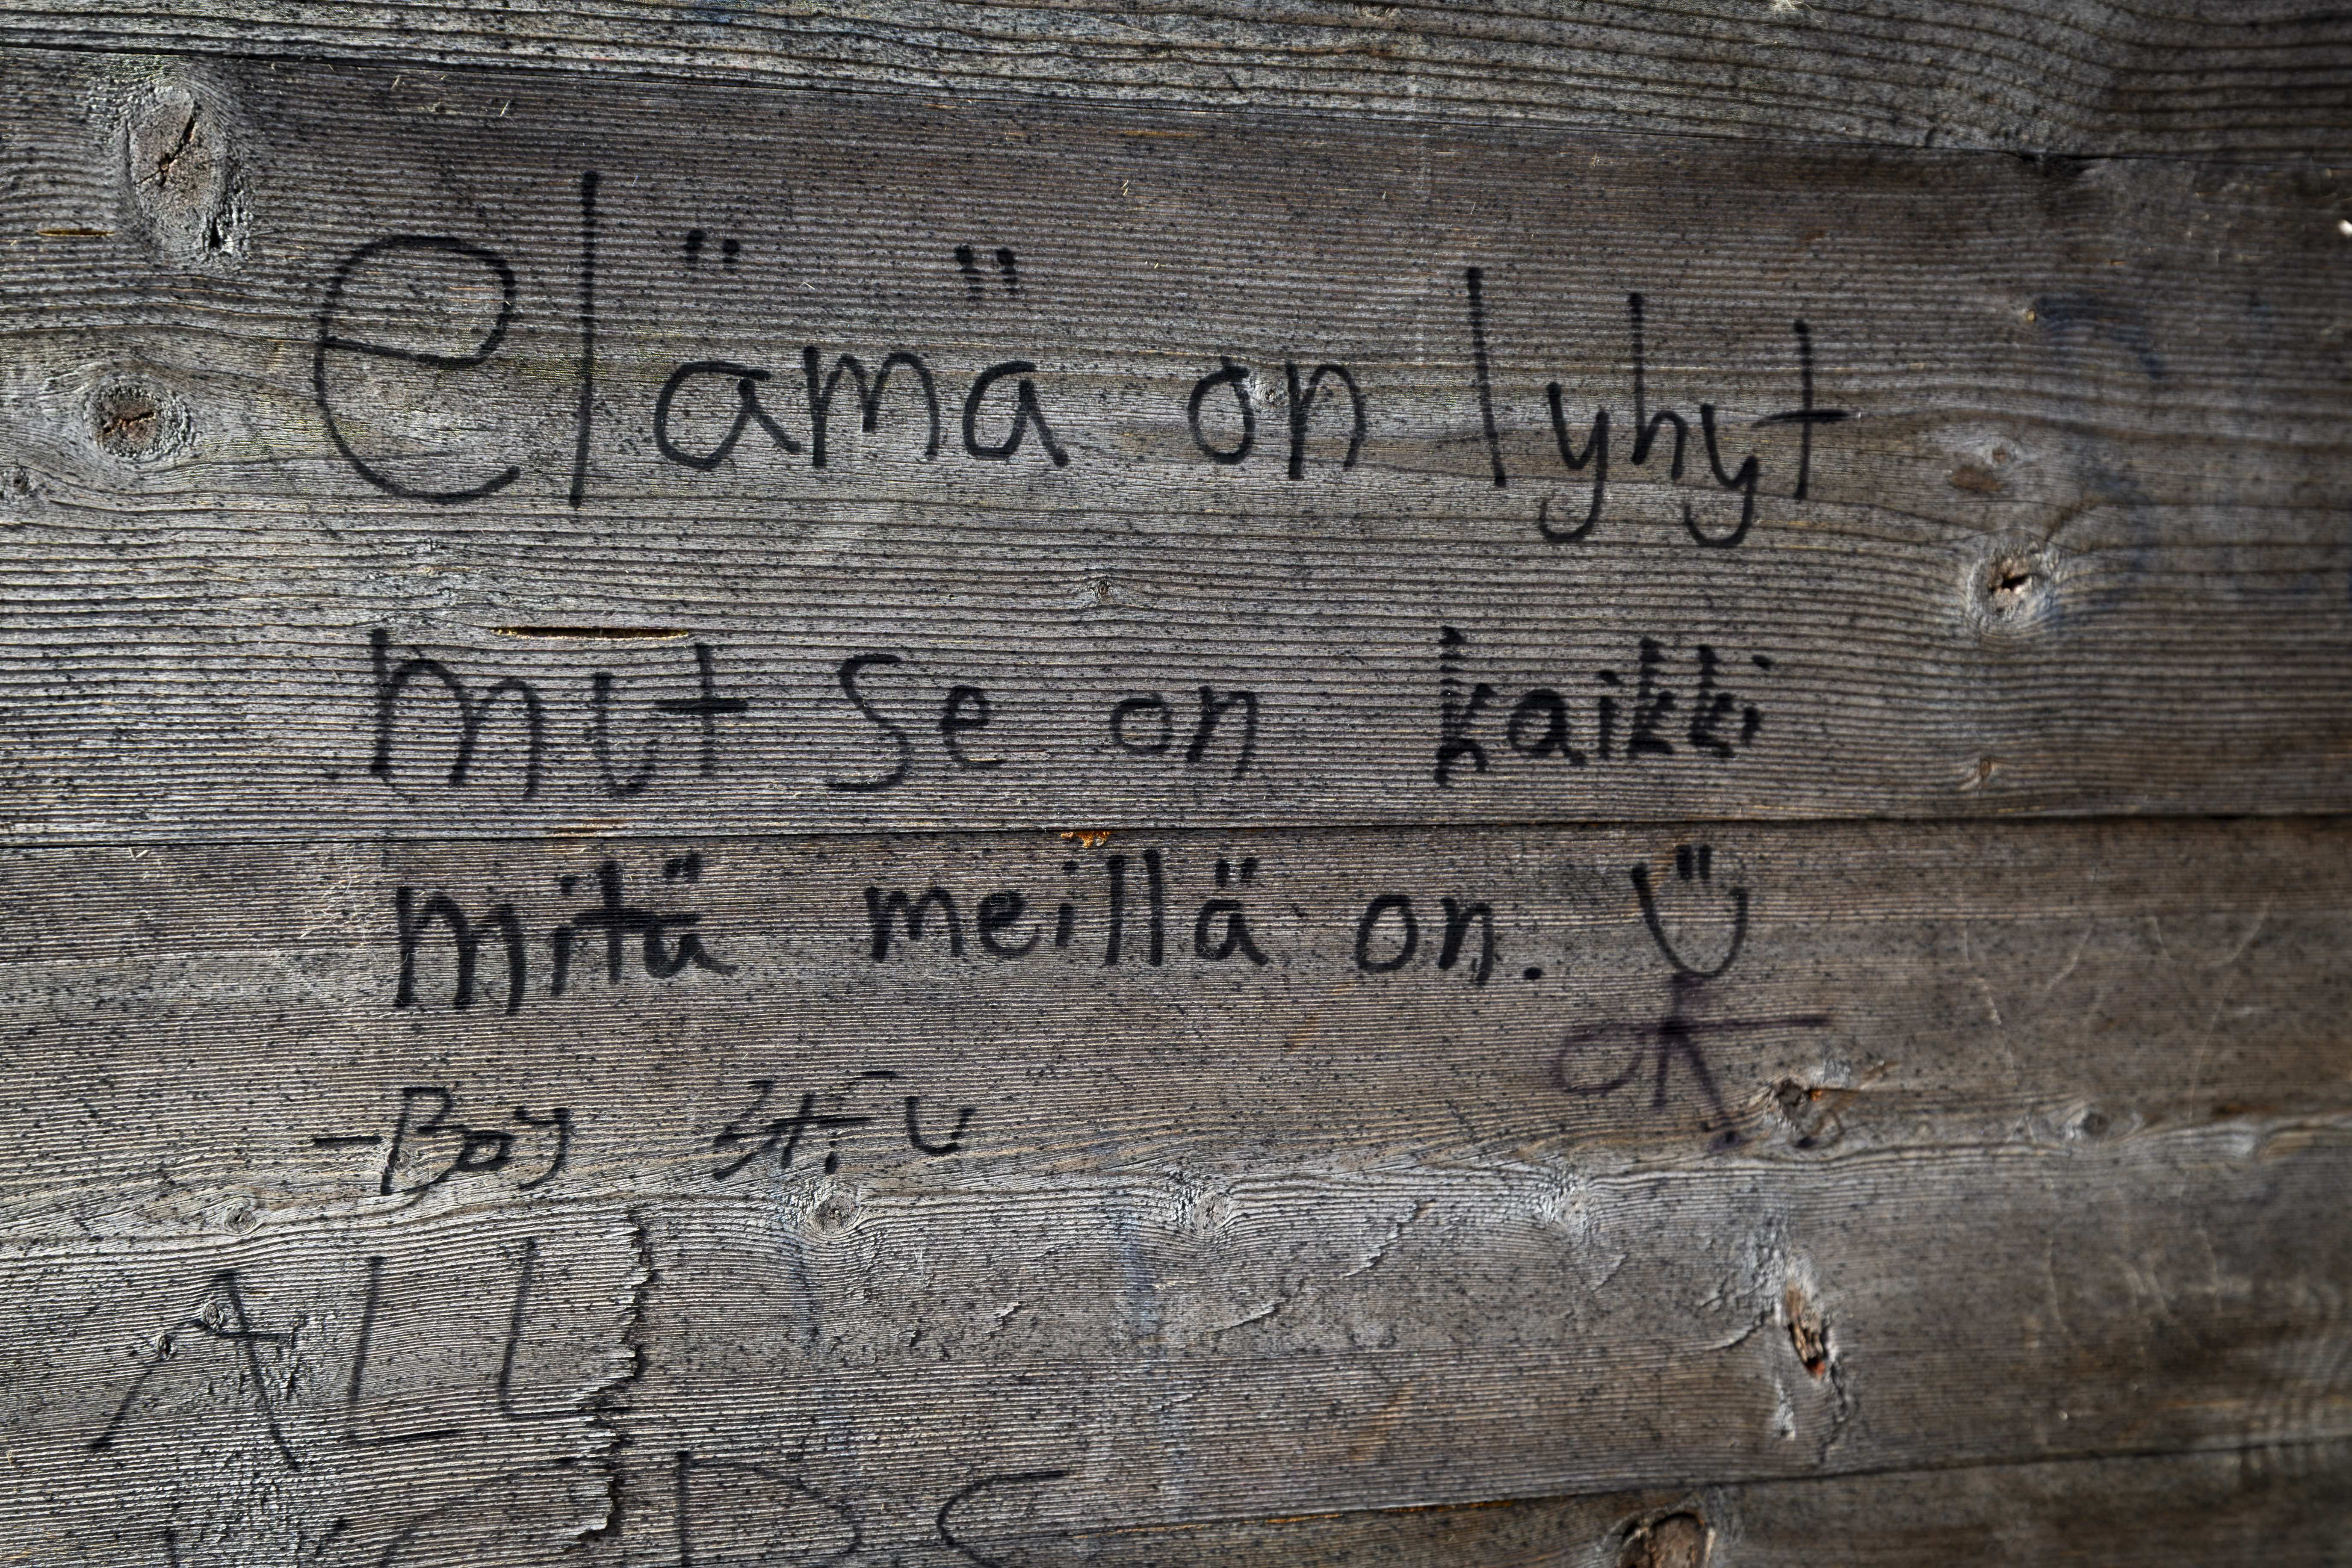 elämä on lyhyt
mut se on kaikki
mitä meillä on.
-Boy stfu
ALL